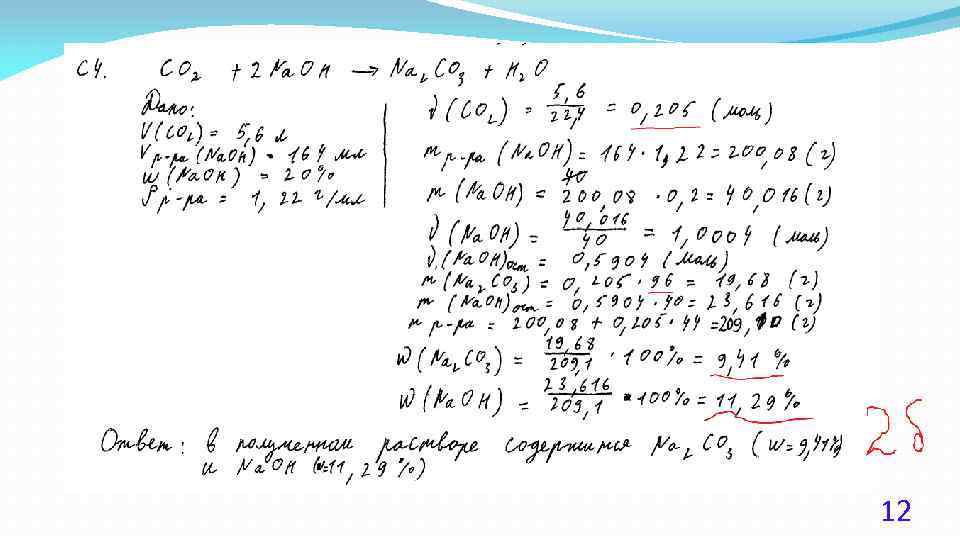 С4. CO₂ + 2 NaOH → Na₂CO₃ + H₂O
Дано:
V(CO₂) = 5,6 л
V р-ра (NaOH) = 164 мл
w (NaOH) = 20%
ρ р-ра = 1,22 г/мл
ν(CO₂) = 5,6/22,4 = 0,205 (моль)
m р-ра (NaOH) = 164 · 1,22 = 200,08 (г)
m (NaOH) = 200,08 · 0,2 = 40,016 (г)
ν (NaOH) = 40,016/40 = 1,0004 (моль)
ν (NaOH)ост = 0,5904 (моль)
m (Na₂CO₃) = 0,205 · 96 = 19,68 (г)
m (NaOH)ост = 0,5904 · 40 = 23,616 (г)
m р-ра = 200,08 + 0,205 · 44 = 209,10 (г)
W (Na₂CO₃) = 19,68/209,1 · 100% = 9,41 %
W (NaOH) = 23,616/209,1 · 100% = 11,29%
Ответ: в полученном растворе содержится Na₂CO₃ (w=9,41%)
и NaOH (w=11,29%)
2б
12